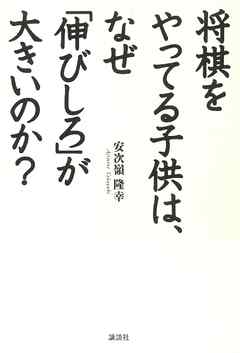 将棋を
やってる子供は、
なぜ
「伸びしろ」が
大きいのか?
安次嶺 隆幸
Ajimine Takayuki
講談社